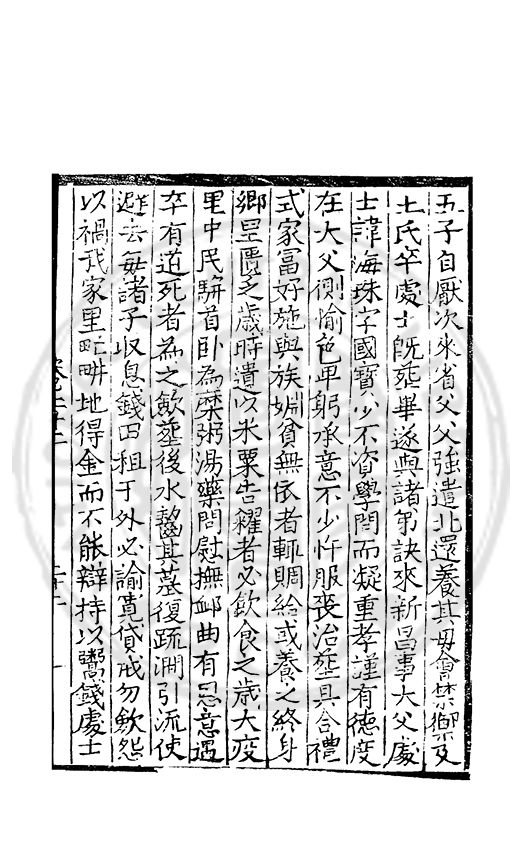 五子自厭次來省父父強遣北還養其毋會禁禦及
土氏卒處士旣葬畢遂與諸弟訣來新昌事大父處
士諱海珠字國寶少不資學問而凝重孝謹有德度
在大父側愉色卑躬承意不少忤服喪治葬具合禮
式家富好施與族婣貧無依者輒賙給或養之終身
鄉里匱乏歲時遺以米粟告糴者必飲食之歲大疫
里中民駢首卧為糜粥湯藥問慰撫卹曲有恩意遇
卒有道死者為之歛塟後水齧其墓復疏澗引流使
避去每諸子收息錢田租于外必諭寬貸戒勿歛怨
以禍我家里甿畊地得金而不能辯持以鬻錢處士